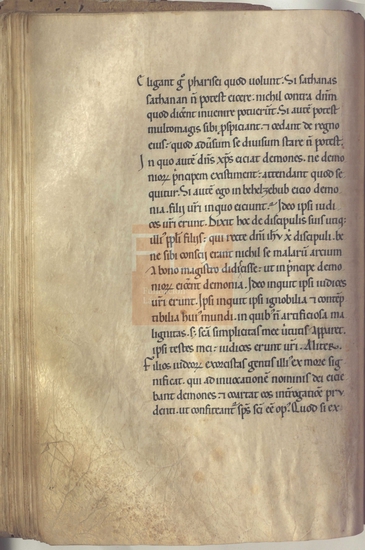 Eligant g̃ pharisei quod uolunt. Si sathanas
sathanan ñ potest eicere. nichil contra dñm
quod dicent inuenire potuerunt. Si autē potest
multo magis sibi p̱spiciant. ⁊ cedant de regno
eius. quod aduersum se diuisum stare ñ potest.
In quo autē dñs xp̄s eiciat demones. ne demo
nioꝝ p̃ncipem existiment. attendant quod se
quitur. Si autē ego in behelzebub eicio demo
nia. filii uri in quo eiciunt. Ideo ipsi iudi
ces uri erunt. Dixit hoc de discipulis suis utiq;
illi ppli filiis. qui certe dñi ihu x̄ discipuli. be
ne sibi conscii erant nichil se malarū artium
a bono magistro didicisse. ut in p̃ncipe demo
nioꝝ eicerent demonia. Ideo inquit ipsi iudices
uri erunt. Ipsi inquit ipsi ignobilia ⁊ contēp
tibilia hui' mundi. in quib; ñ artificiosa ma
lignitas. s; sc̄a simplicitas mee uirtutis apparet.
ipsi testes mei. iudices erunt uri. Aliter.
Filios iudeoꝝ exorcistas gentis illi' ex more sig
nificat. qui ad inuocationē nominis dei eicie
bant demones. ⁊ coartat eos int̃rogatiōe pru
denti. ut confiteant' sp̄s sc̄i eē op'. Quod si ex